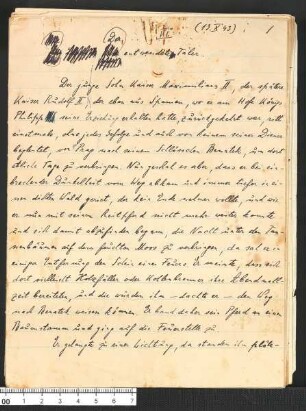 (13.X.43) 1
Der entwendete Taler.
Der junge Sohn Kaiser Maximilians II, der spätere
Kaiser Rudolf II, der eben aus Spanien, wo er am Hofe König
Philipp seine Erziehung erhalten hatte, zurückgekehrt war, ritt
einstmals, ohne jedes Gefolge und auch von keinem seiner Diener
begleitet, von Prag nach seinem Schlösschen Benatek, um dort
etliche Tage zu verbringen. Nun geschah es aber, dass er bei ein-
brechender Dunkelheit vom Weg abkam und immer tiefer in ei-
nen dichten Wald geriet, der kein Ende nehmen wollte, und wie
er nun mit seinem Pferd nicht mehr weiter konnte
und sich damit abzufinden begann, die Nacht unter den Tan-
nenbäumen auf dem feuchten Moos zu verbringen, da sah er in
einiger Entfernung den Schein eines Feuers. Er meinte, dass sich
dort vielleicht Holzfäller oder Kohlenbrenner ihre Abendmahl-
zeit bereiteten, und die würden ihm – dachte er – den Weg
nach Benatek weisen können. Er band daher sein Pferd an einen
Baumstamm und ging auf die Feuerstelle zu.
Er gelangte zu einer Lichtung, da standen ihm plötz-
00 1 2 3 4 5 6 7